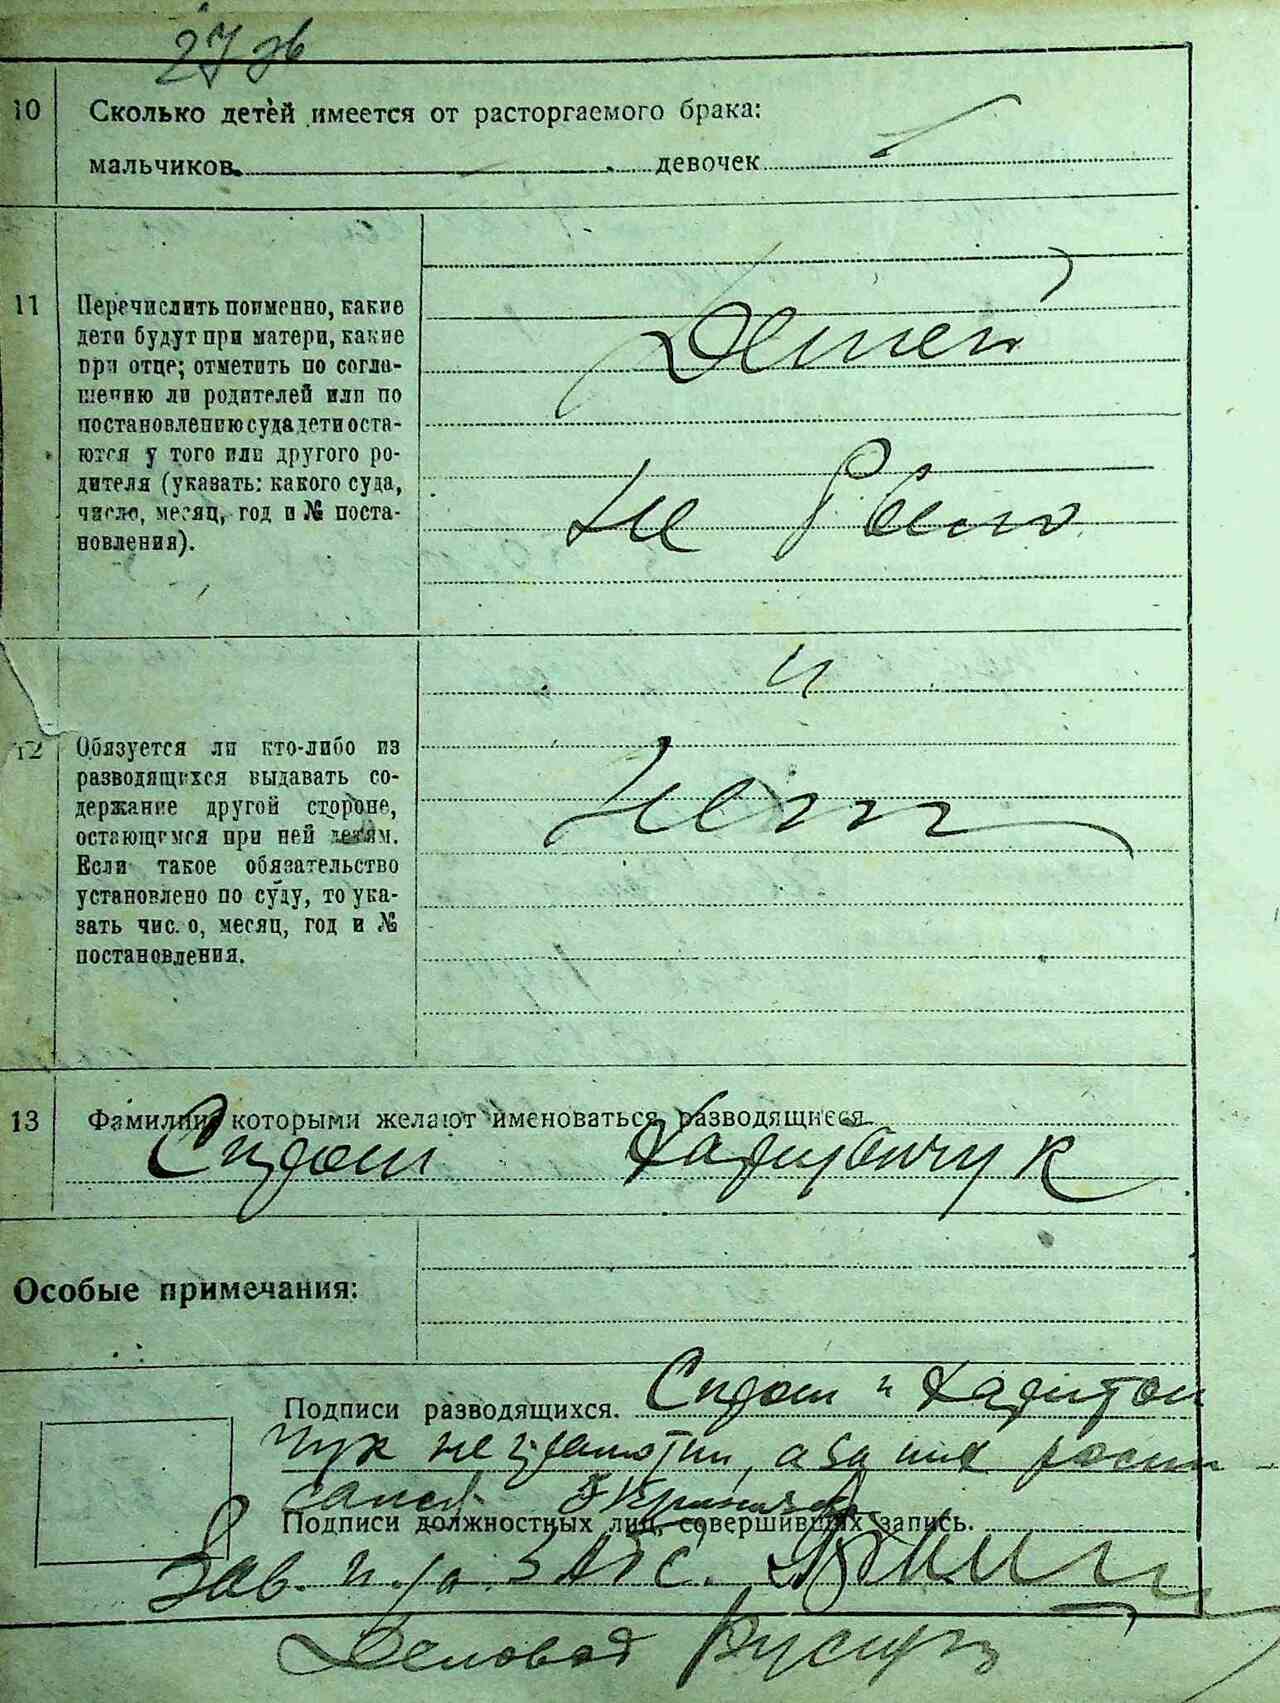 27 зв
10 Сколько детей имеется от расторгаемого брака:
мальчиков девочек
11 Перечислить поименно, какие
дети будут при матери, какие
при отце; отметить по согла-
шению ли родителей или по
постановлению суда дети оста-
ются у того или другого ро-
дителя (указать: какого суда,
число, месяц, год и № поста-
новления).
Детей
не было
12 Обязуется ли кто-либо из
разводящихся выдавать со-
держание другой стороне,
остающимся при ней детям.
Если такое обязательство
установлено по суду, то ука-
зать чис. о, месяц, год и №
постановления.
и
нет
13 Фамилии, которыми желают именоваться разводящиеся
Особые примечания:
Подписи разводящихся. и
чук не грамотни, а за них роспи-
сался
Подписи должностных лиц, совершивших запись.
Зав. п/о ЗАГС.